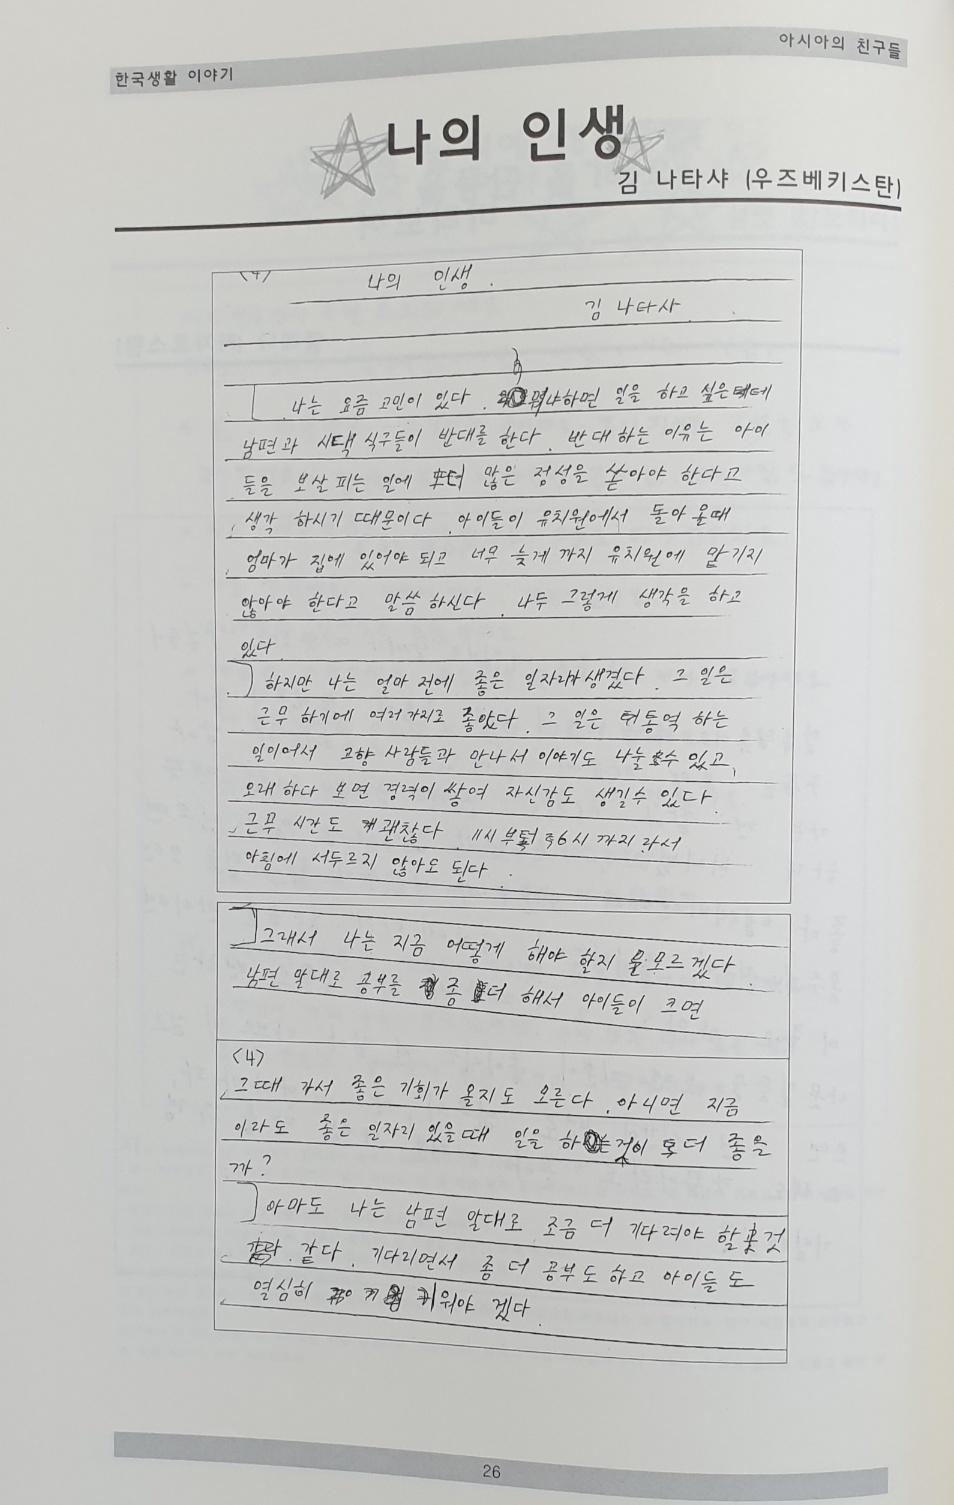 한국생활 이야기
아시아의 친구들
나의 인생
김 나타샤 (우즈베키스탄)
나의 인생.
김 나타사
나는 요즘 고민이 있다. 뭐냐하면 일을 하고 싶은데
남편과 시댁 식구들이 반대를 한다. 반대하는 이유는 아이
들을 보살피는 일에 더 많은 정성을 쏟아야 한다고
생각 하시기 때문이다. 아이들이 유치원에서 돌아 올때
엄마가 집에 있어야 되고 너무 늦게 까지 유치원에 맡기지
않아야 한다고 말씀 하신다. 나두 그렇게 생각을 하고
있다.
하지만 나는 얼마 전에 좋은 일자리가 생겼다. 그 일은
근무 하기에 여러가지로 좋았다. 그 일은 통역 하는
일이어서 고향 사람들과 만나서 이야기도 나눌 수 있고,
오래하다 보면 경력이 쌓여 자신감도 생길수 있다.
근무 시간도 괜찮다. 11시 부터 6시 까지 라서
아침에 서두르지 않아도 된다.
그래서 나는 지금 어떻게 해야 할지 모르겠다.
남편 말대로 공부를 좀 더 해서 아이들이 크면
<4>
그때 가서 좋은 기회가 올지도 모른다. 아니면 지금
이라도 좋은 일자리 있을때 일을 하는 것이 더 좋을
까?
아마도 나는 남편 말대로 조금 더 기다려야 할 것
같다. 기다리면서 좀 더 공부도 하고 아이들도
열심히 키워야 겠다.
26